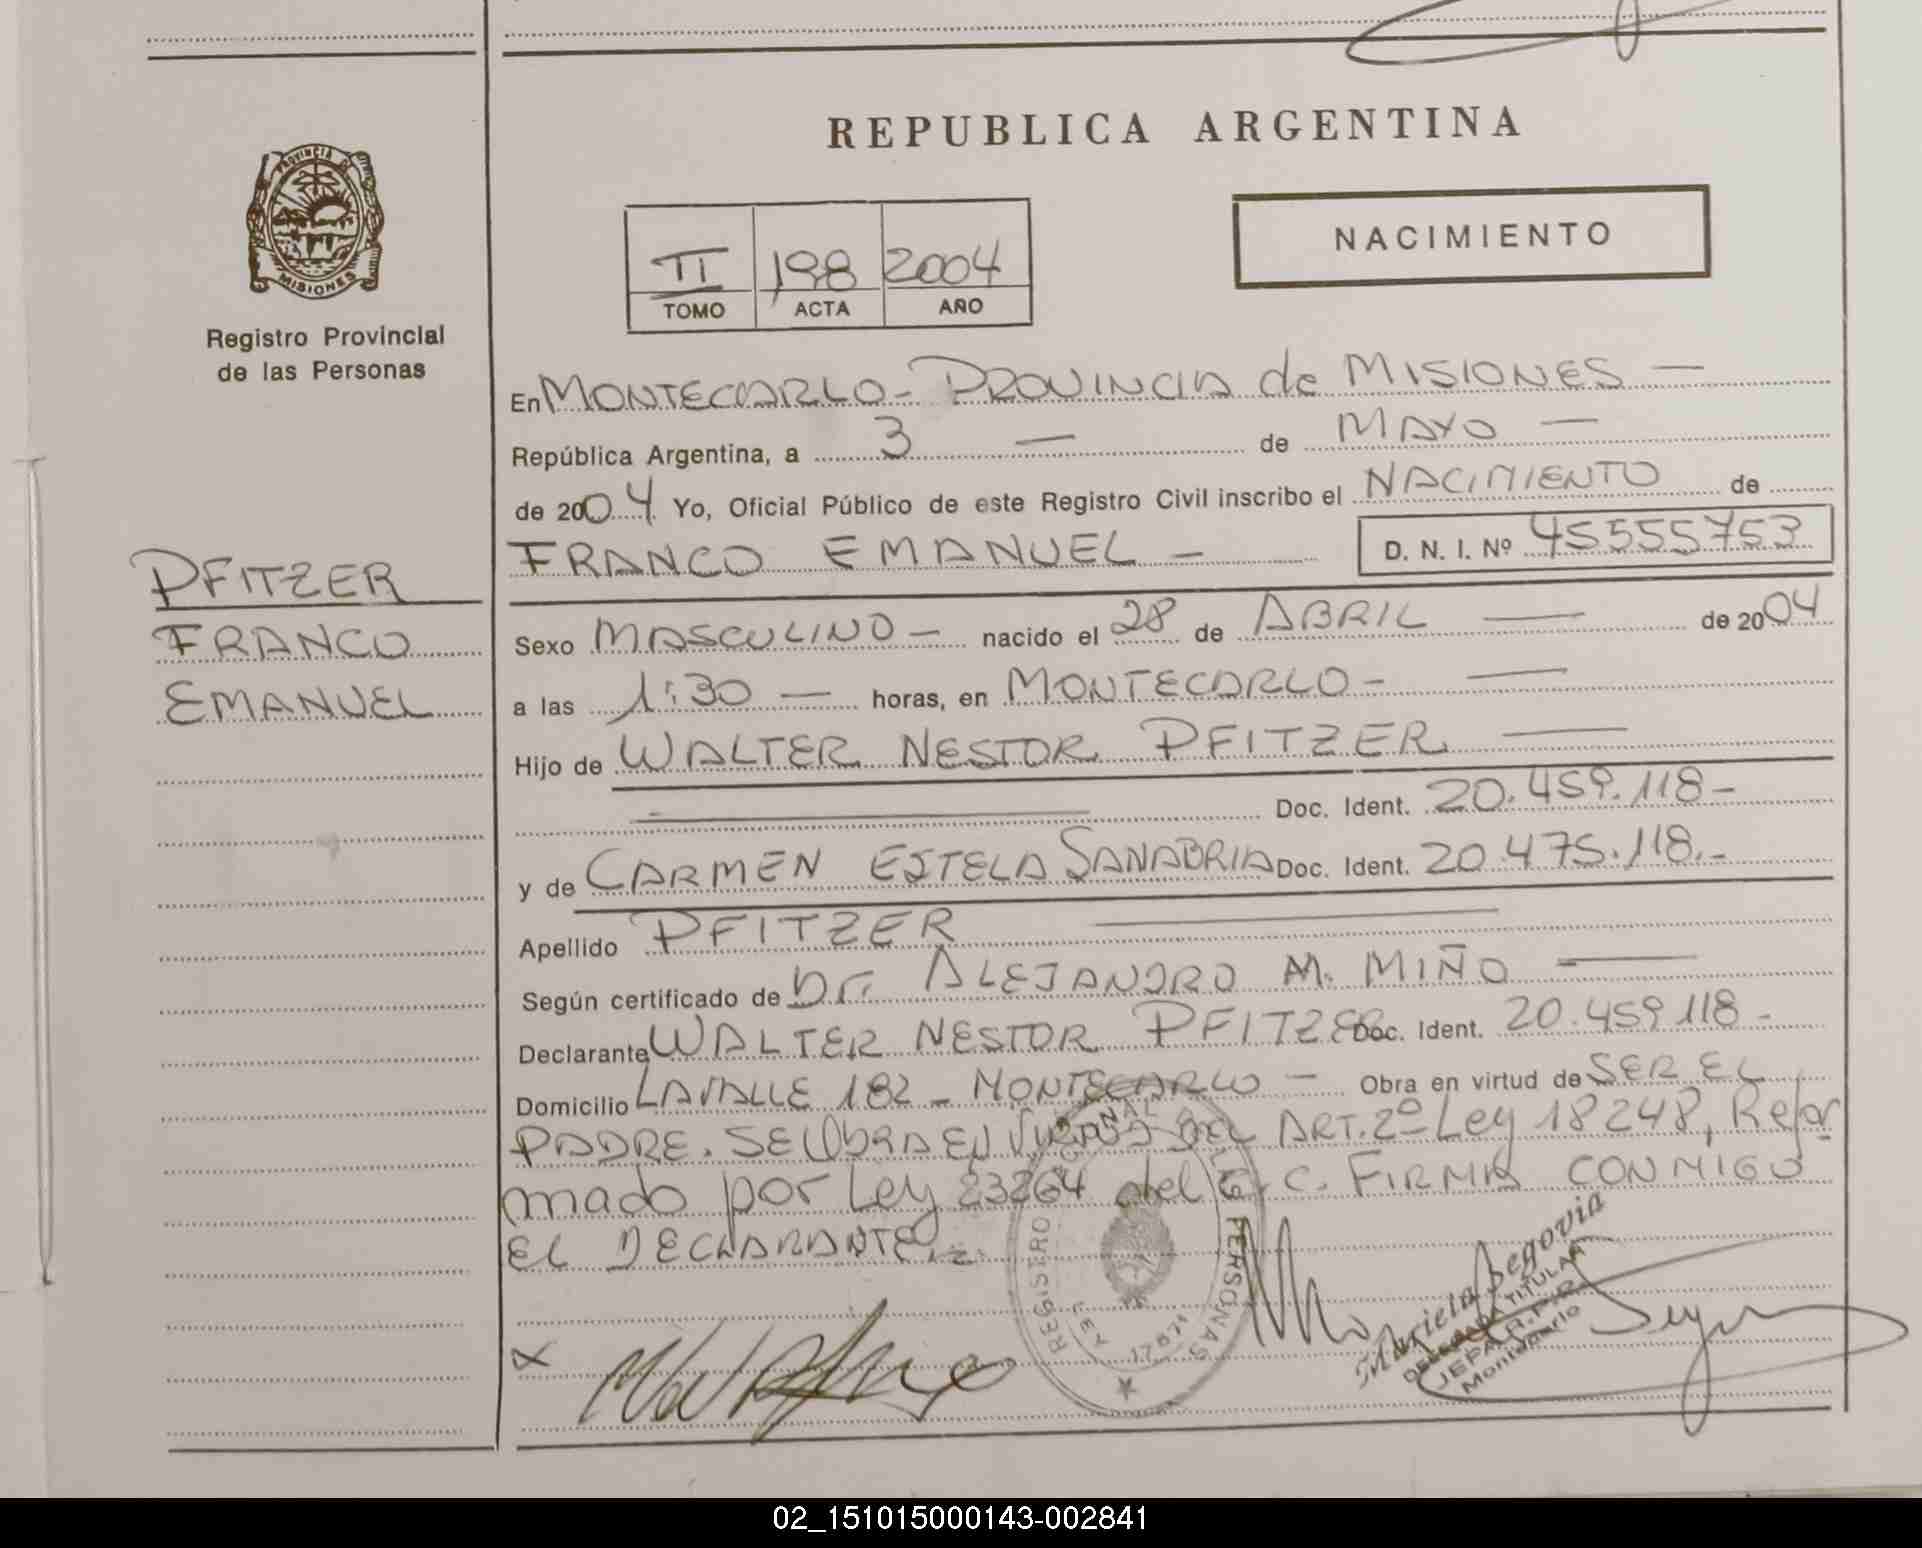 REPUBLICA ARGENTINA
PROVINCIA DE
MISIONES
Registro Provincial
de las Personas
NACIMIENTO
II 198 2004
TOMO ACTA AÑO
En MONTECARLO - PROVINCIA de MISIONES —
República Argentina, a 3 — de MAYO —
de 2004 Yo, Oficial Público de este Registro Civil inscribo el NACIMIENTO de
FRANCO EMANUEL — D. N. I. Nº 45555753
PFITZER
FRANCO
EMANUEL
Sexo MASCULINO — nacido el 28 de ABRIL — de 2004
a las 1:30 — horas, en MONTECARLO - —
Hijo de WALTER NESTOR PFITZER —
Doc. Ident. 20.459.118 -
y de CARMEN ESTELA SANABRIA Doc. Ident. 20.475.118.-
Apellido PFITZER
Según certificado de Dr. ALEJANDRO M. MIÑO —
Declarante WALTER NESTOR PFITZER Doc. Ident. 20.459118 -
Domicilio LAVALLE 182 - MONTECARLO — Obra en virtud de SER EL
PADRE. SE OBRA EN VIRTUD DEL ART. 2º Ley 18248, Refor
mado por Ley 23264 del C. C. FIRMA CONMIGO
EL DECLARANTE.
REGISTRO PERSONAS
LEY 17671
Mariela Segovia
DELEGADA TITULAR
Montecarlo
02_151015000143-002841